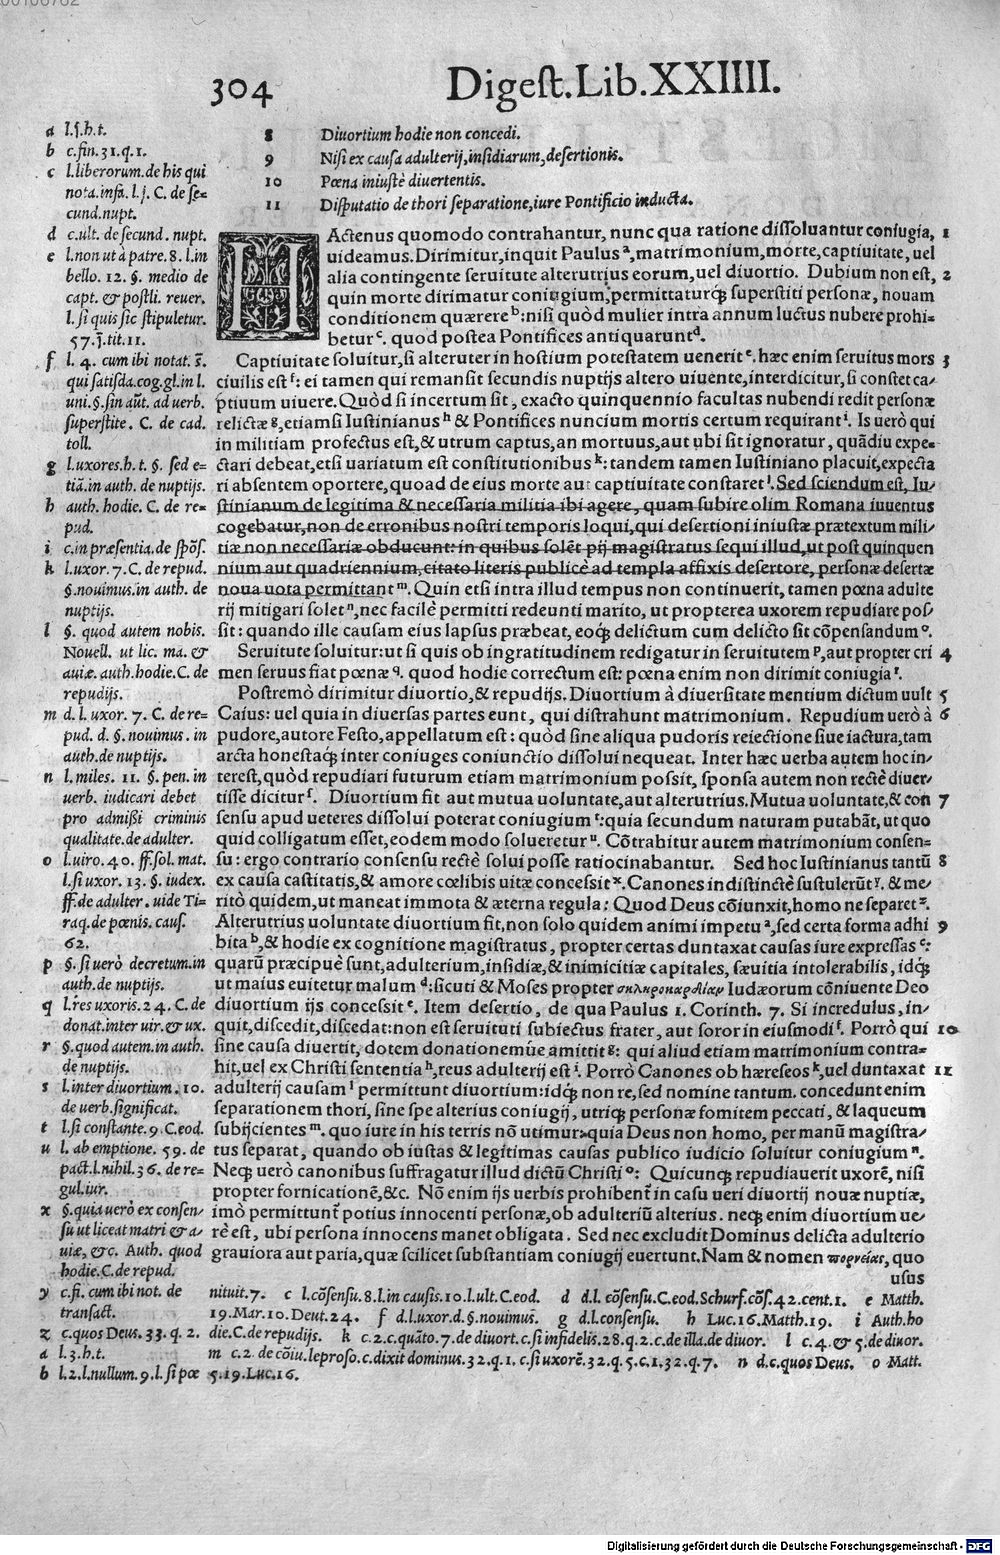 304 Digest. Lib. XXIIII.
8 Diuortium hodie non concedi.
9 Nisi ex causa adulterij, insidiarum, desertionis.
10 Pœna iniustè diuertentis.
11 Disputatio de thori separatione, iure Pontificio inducta.
HActenus quomodo contrahantur, nunc qua ratione dissoluantur coniugia, 1
uideamus. Dirimitur, inquit Paulus ᵃ, matrimonium, morte, captiuitate, uel
alia contingente seruitute alterutrius eorum, uel diuortio. Dubium non est, 2
quin morte dirimatur coniugium, permittaturq́; superstiti personæ, nouam
conditionem quærere ᵇ: nisi quòd mulier intra annum luctus nubere prohi-
betur ᶜ. quod postea Pontifices antiquarunt ᵈ.
Captiuitate soluitur, si alteruter in hostium potestatem uenerit ᵉ. hæc enim seruitus mors 3
ciuilis est ᶠ: ei tamen qui remansit secundis nuptijs altero uiuente, interdicitur, si constet ca-
ptiuum uiuere. Quòd si incertum sit, exacto quinquennio facultas nubendi redit personæ
relictæ ᵍ, etiamsi Iustinianus ʰ & Pontifices nuncium mortis certum requirant ⁱ. Is uerò qui
in militiam profectus est, & utrum captus, an mortuus, aut ubi sit ignoratur, quãdiu expe-
ctari debeat, etsi uariatum est constitutionibus ᵏ: tandem tamen Iustiniano placuit, expecta
ri absentem oportere, quoad de eius morte aut captiuitate constaret ˡ. Sed sciendum est, Iu-
stinianum de legitima & necessaria militia ibi agere, quam subire olim Romana iuuentus
cogebatur, non de erronibus nostri temporis loqui, qui desertioni iniustæ prætextum mili-
tiæ non necessariæ obducunt: in quibus solẽt pij magistratus sequi illud, ut post quinquen
nium aut quadriennium, citato literis publicè ad templa affixis desertore, personæ desertæ
noua uota permittant ᵐ. Quin etsi intra illud tempus non continuerit, tamen pœna adulte
rij mitigari solet ⁿ, nec facilè permitti redeunti marito, ut propterea uxorem repudiare pos-
sit: quando ille causam eius lapsus præbeat, eoq́; delictum cum delicto sit cõpensandum ᵒ.
Seruitute soluitur: ut si quis ob ingratitudinem redigatur in seruitutem ᵖ, aut propter cri 4
men seruus fiat pœnæ q. quod hodie correctum est: pœna enim non dirimit coniugia ʳ.
Postremò dirimitur diuortio, & repudijs. Diuortium à diuersitate mentium dictum uult 5
Caius: uel quia in diuersas partes eunt, qui distrahunt matrimonium. Repudium uerò à 6
pudore, autore Festo, appellatum est: quòd sine aliqua pudoris reiectione siue iactura, tam
arcta honestaq́; inter coniuges coniunctio dissolui nequeat. Inter hæc uerba autem hoc in-
terest, quòd repudiari futurum etiam matrimonium possit, sponsa autem non rectè diuer-
tisse dicitur ˢ. Diuortium fit aut mutua uoluntate, aut alterutrius. Mutua uoluntate, & con 7
sensu apud ueteres dissolui poterat coniugium ᵗ: quia secundum naturam putabãt, ut quo
quid colligatum esset, eodem modo solueretur ᵘ. Cõtrahitur autem matrimonium consen-
su: ergo contrario consensu rectè solui posse ratiocinabantur. Sed hoc Iustinianus tantũ 8
ex causa castitatis, & amore cœlibis uitæ concessit ˣ. Canones indistinctè sustulerũt ʸ. & me-
ritò quidem, ut maneat immota & æterna regula: Quod Deus cõiunxit, homo ne separet ᶻ.
Alterutrius uoluntate diuortium fit, non solo quidem animi impetu ᵃ, sed certa forma adhi 9
bita ᵇ, & hodie ex cognitione magistratus, propter certas duntaxat causas iure expressas ᶜ:
quarũ præcipuè sunt, adulterium, insidiæ, & inimicitiæ capitales, sæuitia intolerabilis, idq́;
ut maius euitetur malum ᵈ: sicuti & Moses propter σκληροκαρδίαν Iudæorum cõniuente Deo
diuortium ijs concessit ᵉ. Item desertio, de qua Paulus 1. Corinth. 7. Si incredulus, in-
quit, discedit, discedat: non est seruituti subiectus frater, aut soror in eiusmodi ᶠ. Porrò qui 10
sine causa diuertit, dotem donationemúe amittit ᵍ: qui aliud etiam matrimonium contra-
hit, uel ex Christi sententia ʰ, reus adulterij est ⁱ. Porrò Canones ob hæreseos ᵏ, uel duntaxat 11
adulterij causam ˡ permittunt diuortium: idq́; non re, sed nomine tantum. concedunt enim
separationem thori, sine spe alterius coniugij, utriq́; personæ fomitem peccati, & laqueum
subijcientes ᵐ. quo iure in his terris nõ utimur: quia Deus non homo, per manũ magistra-
tus separat, quando ob iustas & legitimas causas publico iudicio soluitur coniugium ⁿ.
Neq́; uerò canonibus suffragatur illud dictũ Christi ᵒ: Quicunq́; repudiauerit uxorẽ, nisi
propter fornicationẽ, &c. Nõ enim ijs uerbis prohibent̃ in casu ueri diuortij nouæ nuptiæ,
imò permittunt̃ potius innocenti personæ, ob adulteriũ alterius. neq́; enim diuortium ue-
rè est, ubi persona innocens manet obligata. Sed nec excludit Dominus delicta adulterio
grauiora aut paria, quæ scilicet substantiam coniugij euertunt. Nam & nomen πορνείας, quo
usus
a l.1. h.t.
b c.fin. 31. q. 1.
c l.liberorum. de his qui
nota. infa. l.j. C. de se-
cund. nupt.
d c.ult. de secund. nupt.
e l.non ut à patre. 8. l.in
bello. 12. §. medio de
capt. & postli. reuer.
l. si quis sic stipuletur.
57. j. tit. 11.
f l. 4. cum ibi notat. s̃.
qui satisda. cog. gl. in l.
uni. §. sin aũt. ad uerb.
superstite. C. de cad.
toll.
g l.uxores. h. t. §. sed e-
tiã. in auth. de nuptijs.
h auth. hodie. C. de re-
pud.
i c.in præsentia. de spõs.
k l.uxor. 7. C. de repud.
§. nouimus. in auth. de
nuptijs.
l §. quod autem nobis.
Nouell. ut lic. ma. &
auiæ. auth. hodie. C. de
repudijs.
m d. l. uxor. 7. C. de re-
pud. d. §. nouimus. in
auth. de nuptijs.
n l.miles. 11. §. pen. in
uerb. iudicari debet
pro admissi criminis
qualitate. de adulter.
o l.uiro. 40. ff. sol. mat.
l. si uxor. 13. §. iudex.
ff. de adulter. uide Ti-
raq. de pœnis. caus.
62.
p §. si uerò decretum. in
auth. de nuptijs.
q l. res uxoris. 24. C. de
donat. inter uir. & ux.
r §. quod autem. in auth.
de nuptijs.
s l.inter diuortium. 10.
de uerb. significat.
t l. si constante. 9. C. eod.
u l. ab emptione. 59. de
pact. l. nihil. 36. de re-
gul. iur.
x §. quia uerò ex consen-
su ut liceat matri & a-
uiæ, &c. Auth. quod
hodie. C. de repud.
y c.fi. cum ibi not. de
transact.
z c.quos Deus. 33. q. 2.
a l. 3. h.t.
b l. 2. l. nullum. 9. l. si pœ
nituit. 7. c l. cõsensu. 8. l. in causis. 10. l. ult. C. eod. d d. l. cõsensu. C. eod. Schurf. cõs. 42. cent. 1. e Matth.
19. Mar. 10. Deut. 24. f d. l. uxor. d. §. nouimus̃. g d. l. consensu. h Luc. 16. Matth. 19. i Auth. ho
die. C. de repudijs. k c. 2. c. quãto. 7. de diuort. c. si infidelis. 28. q. 2. c. de illa. de diuor. l c. 4. & 5. de diuor.
m c. 2. de cõiu. leproso. c. dixit dominus. 32. q. 1. c. si uxorẽ. 32. q. 5. c. 1. 32. q. 7. n d. c. quos Deus. o Matt.
5. 19. Luc. 16.
Digitalisierung gefördert durch die Deutsche Forschungsgemeinschaft - DFG